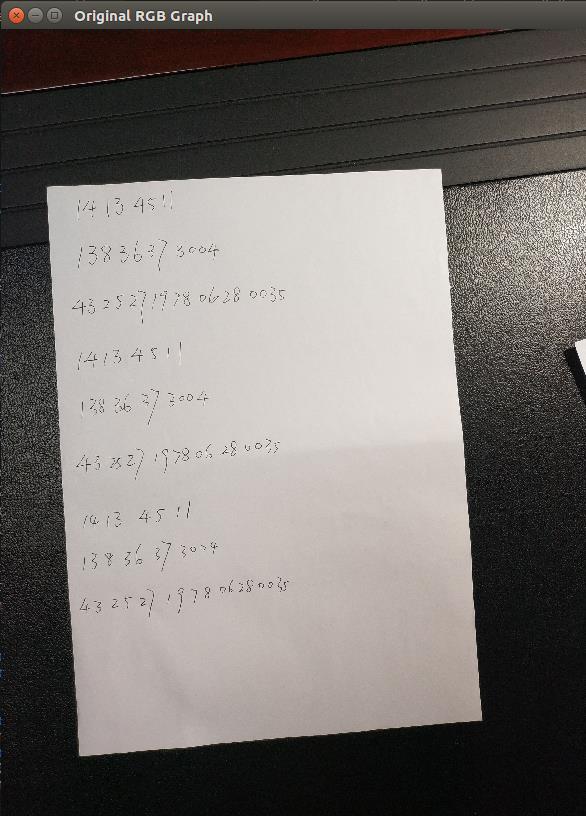 Original RGB Graph
1413 4511
1383637 3004
432527197806280035
1413 4511
138 36 37 3004
43 2527 197806 280035
1413 4511
138 36 37 3004
43 25 27 1978 06280035